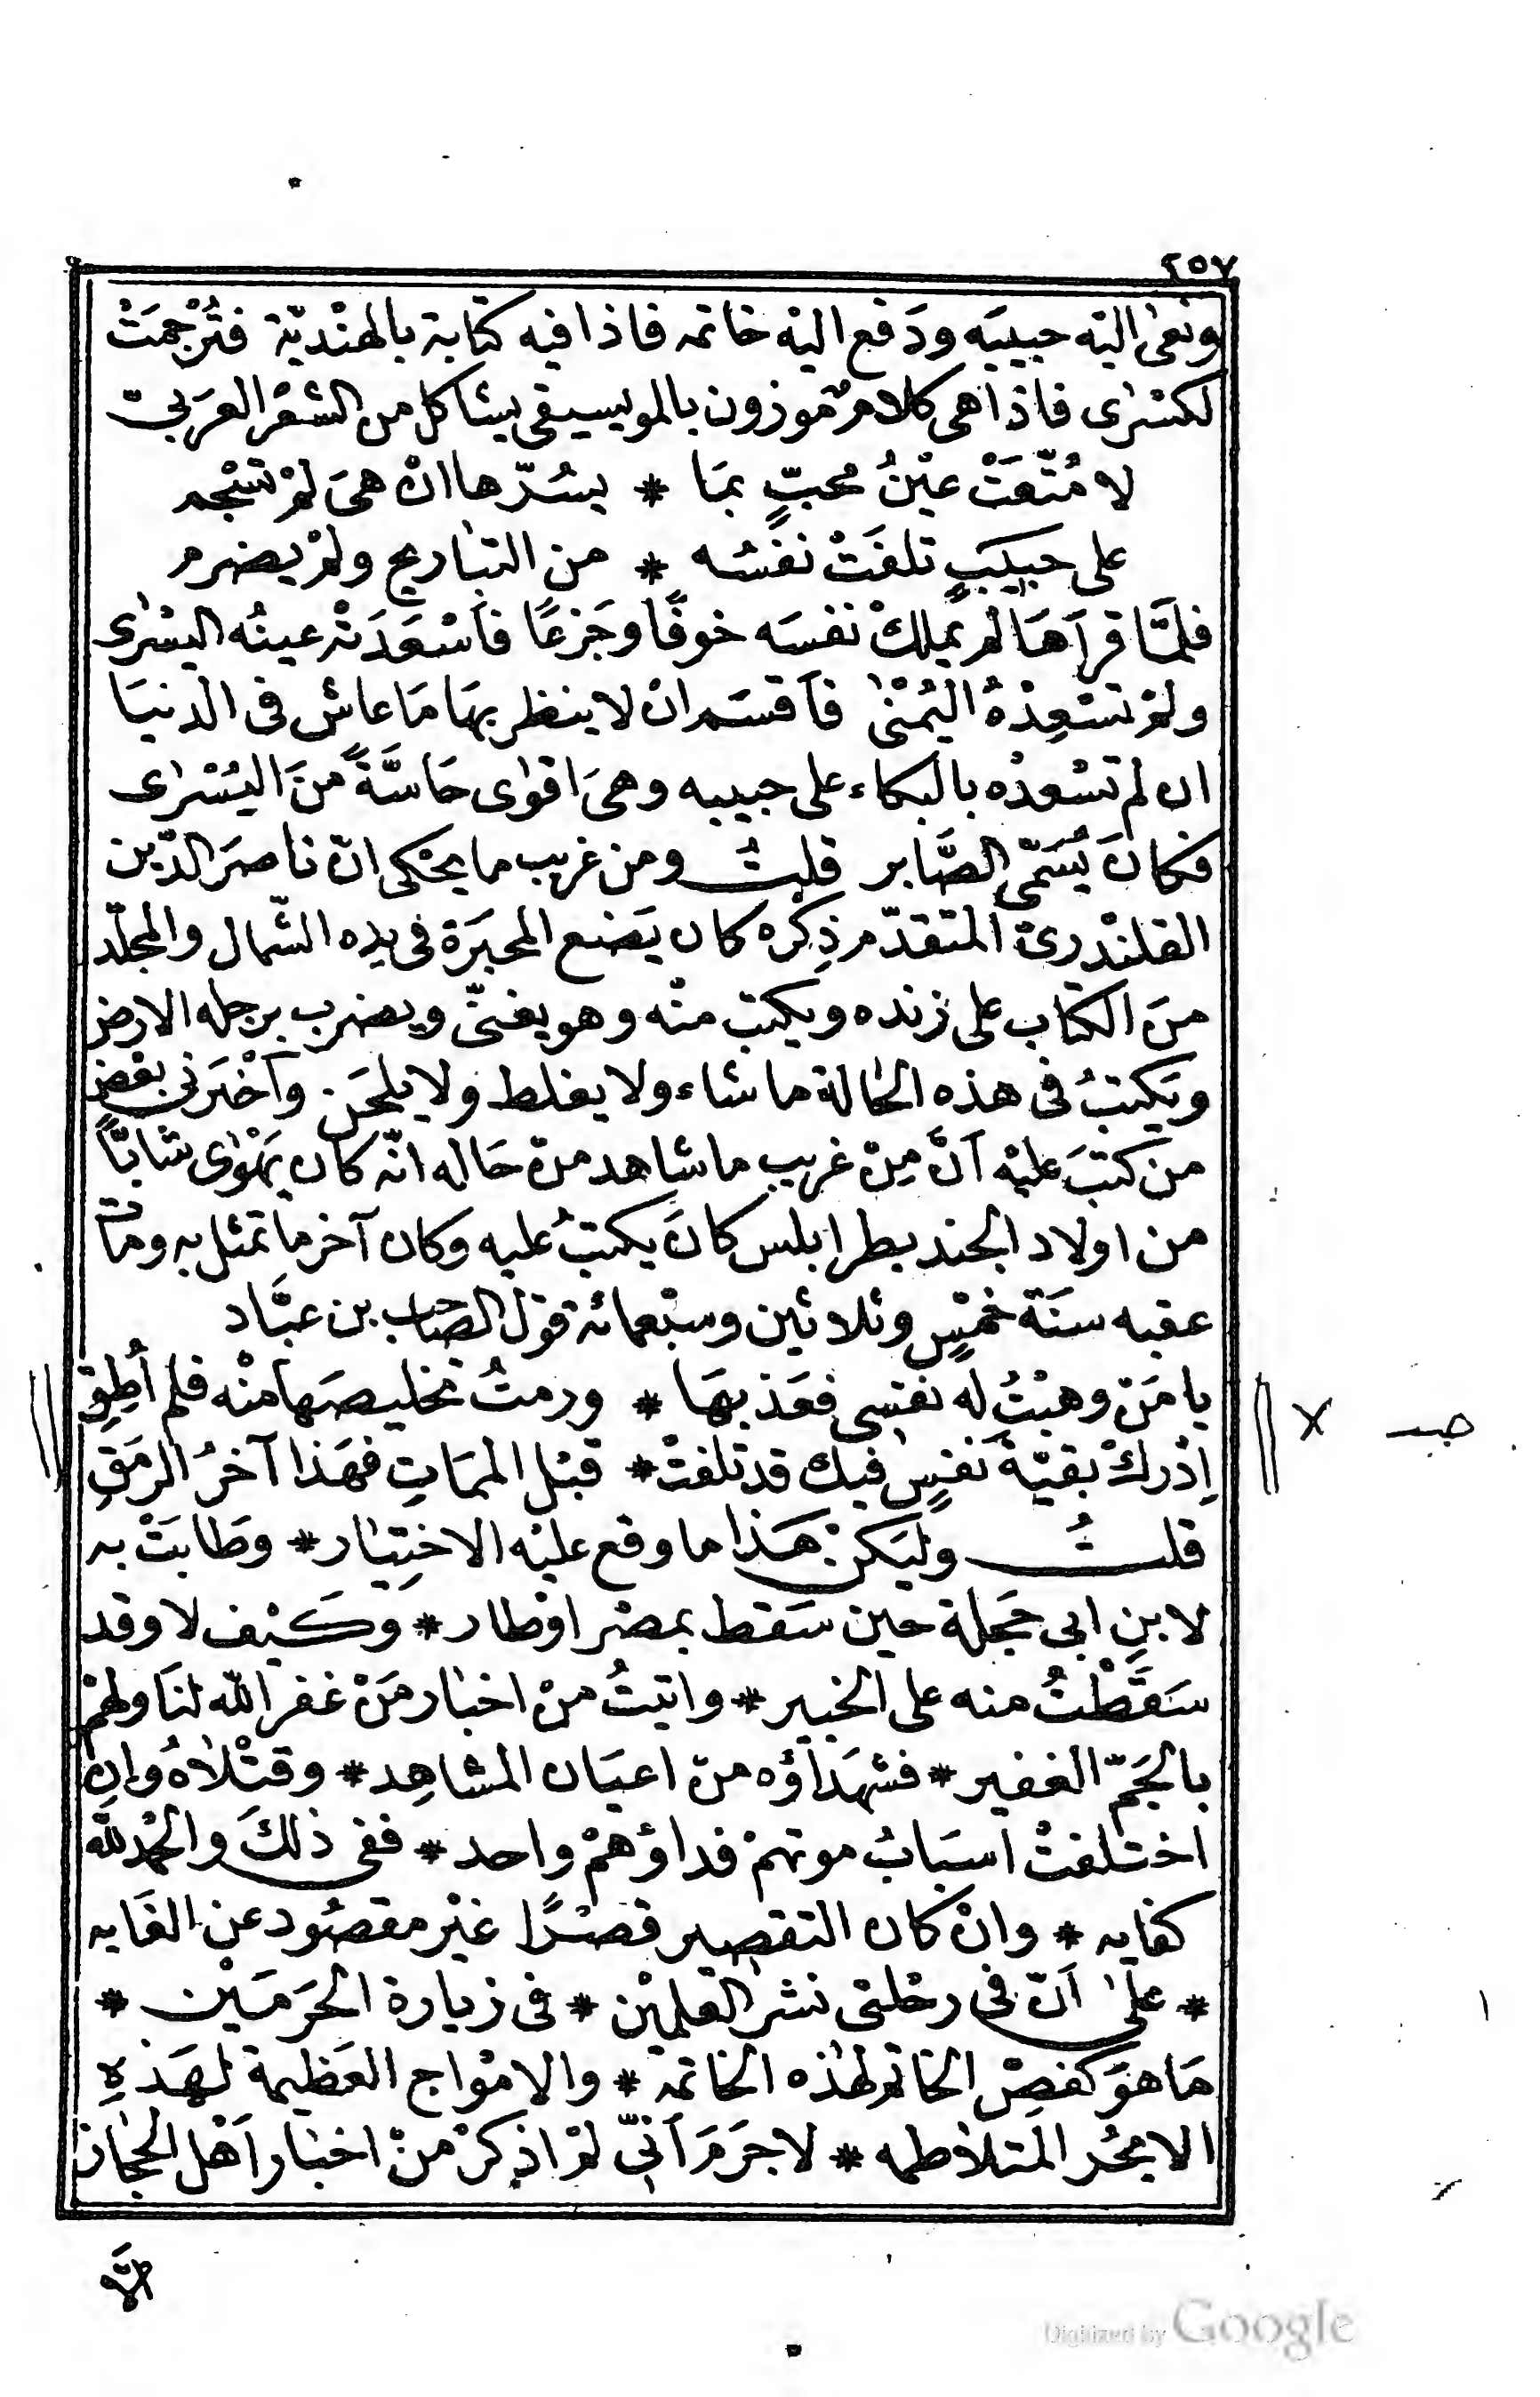 ٢٥٧
ونعى اليْه حبيبَه ودَفع اليْه خاتمه فاذا فيه كتابة بالهنْديّة فتُرْجمَتْ
لكسْرٰى فاذا هى كلامٌ موزون بالموسيقى يشاكل من الشعْر العرَبىّ
لا مُتّعَتْ عيْنُ محبّ بمَا * يسُرّها انْ هىَ لمْ تسْجم
على حبيبٍ تلفَتْ نفسُه * من التبٰاريح ولمْ يضرم
فلمَّا قرأهَا لم يملكْ نفسَه خوفًا وجَزعًا فأسْعَدَتْه عينُه اليسْرٰى
ولمْ تسْعِدْهُ اليُمْنٰى فأقسَم انْ لا ينظر بهَا مَا عاش فى الدنيَا
ان لم تسْعدْه بالبكاء على حبيبه وهىَ اقوٰى حَاسَّةً منَ اليُسْرٰى
فكانَ يُسَمّى الصَّابر قلتُ ومن غريب ما يحْكى انّ ناصرَ الدّين
القلنْدرىّ المتقدّم ذِكره كان يَضع المحبرَة فى يده الشّمال والمجلّد
منَ الكتاب على زنده ويكتب منْه وهو يغنّى ويضرب برجله الارض
ويَكتبُ فى هذه الحٰالة ما شاء ولا يغلط ولا يلحَن وأخْبَرنى بعْض
من كتبَ عليْه أنَّ مِنْ غريب ما شاهد منْ حَاله انّه كان يَهْوٰى شابًّا
من اولاد الجند بطرابلس كانَ يكتبُ عليه وكان آخر ما تمثل به ومات
عقبه سنَة خمْسٍ وثلاثين وسبْعمائه قوْل الصّاحب بن عبَّاد
يا مَنْ وهبْتُ له نفسى فعَذبهَا * ورمتُ تخليصَها منْه فلم أُطِقِ
اِدْركْ بقيّةَ نفسٍ فيك قد تلفتْ * قبْل الممَاتِ فهَذا آخرُ الرمَقِ
قلتُ وليَكنْ هَذا ما وقع عليْه الاختِيٰار * وطَابَتْ به
لابنِ ابى حَجلة حين سَقط بمصْر اوْطار * وكَيْف لا وقد
سَقَطْتُ منه على الخبير * واتيتُ منْ اخبٰار مَنْ غفر الله لنَا ولهمْ
بالجَمّ الغفير * فشهَدَاؤه منْ اعيَان المشاهِد * وقتْلاهُ وان
اختلفتْ اسبَابُ موتهمْ فداؤهمْ واحد * ففى ذلكَ والحمْد لله
كفايه * وانْ كان التقصير قصْدًا غيْر مقصُود عن الغَايه
* علىٰ أنّ فى رحْلتى نشر العَلميْن * فى زيارة الحَرَمَيْن *
مَا هوَ كفصّ الخَاتم لهٰذه الخاتمة * والامْواج العَظيمة لهَذهِ
الابحُر المتلاطمه * لا جَرَمَ أنّى لمْ اذكرْ منْ اخبٰار أهْل الحجٰاز
الَّا
Digitized by Google